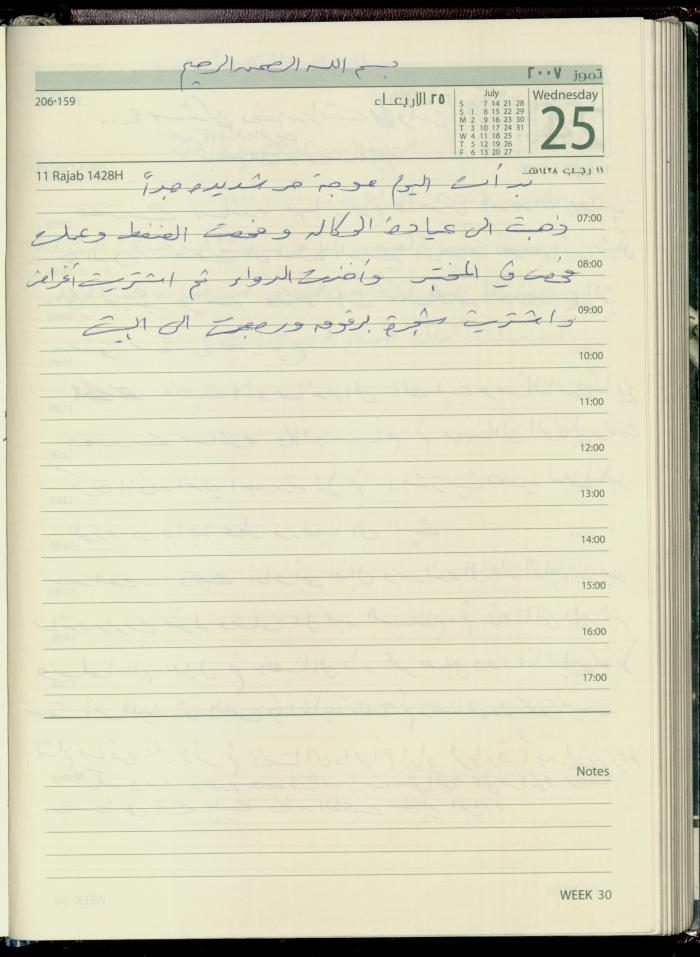 بسم الله الرحمن الرحيم
تموز ٢٠٠٧
206-159
٢٥ الأربعـاء
July
S 7 14 21 28
S 1 8 15 22 29
M 2 9 16 23 30
T 3 10 17 24 31
W 4 11 18 25
T 5 12 19 26
F 6 13 20 27
Wednesday
25
11 Rajab 1428H
١١ رجب ١٤٢٨هـ
بدأت اليوم موجة حر شديده جداً
07:00
ذهبت الى عيادة الوكاله وفحصت الضغط وعملت
08:00
فحص في المختبر وأخذت الدواء ثم اشتريت أغراض
09:00
واشتريت شجرة برقوقه ورجعت الى البيت
10:00
11:00
12:00
13:00
14:00
15:00
16:00
17:00
Notes
WEEK 30